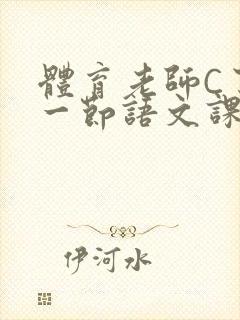 體育老師C
一節語文課
伊河水